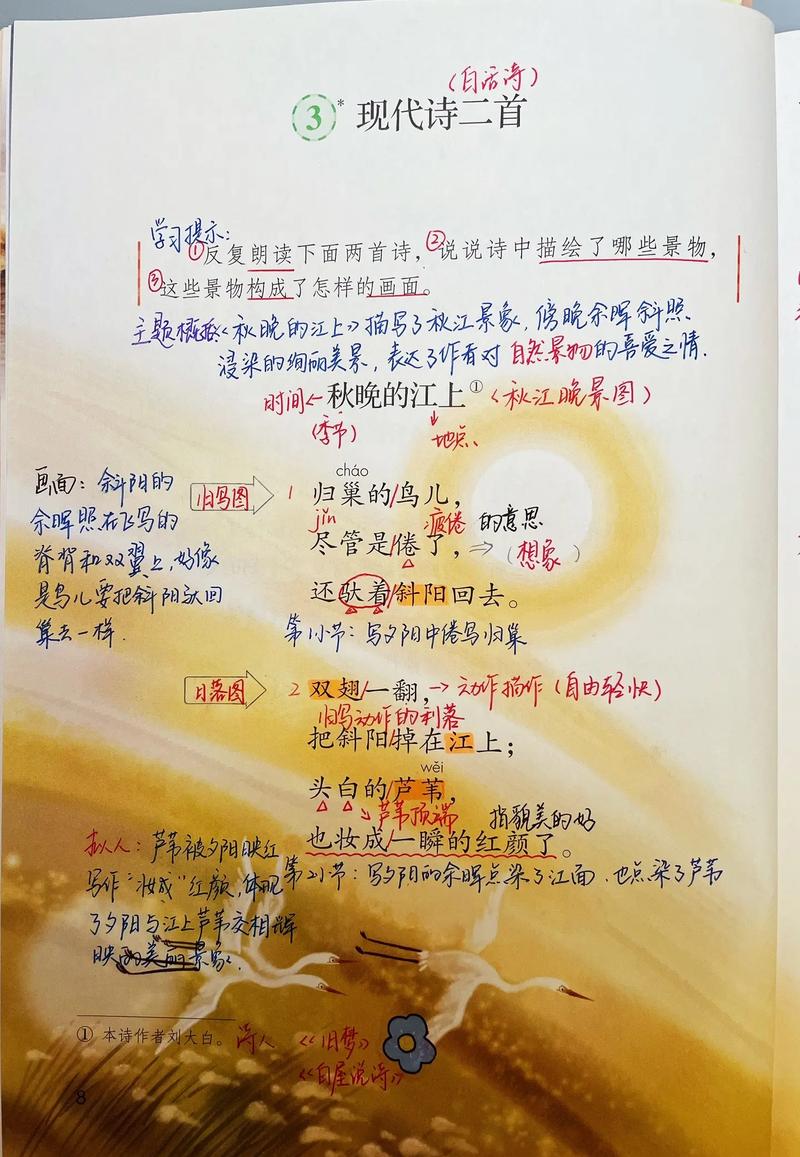 （白话诗）
3* 现代诗二首
学习提示：
①反复朗读下面两首诗，②说说诗中描绘了哪些景物，
③这些景物构成了怎样的画面。
主题概括《秋晚的江上》描写了秋江景象，傍晚余晖斜照、
浸染的绚丽美景，表达了作者对自然景物的喜爱之情.
时间←秋晚的江上①《秋江晚景图》
（季节） 地点
画面：余斜阳的
余晖照在飞鸟的
脊背和双翼上，好像
是鸟儿要把斜阳驮回
巢去一样.
归鸟图 1
cháo
归巢的/鸟儿，
jǐn 疲倦 的意思
尽管是/倦了，⇒（想象）
还驮着/斜阳回去。
第1小节：写夕阳中倦鸟归巢
日落图 2 双翅/一翻，→动作描作（自由轻快）
归鸟动作的利落
把斜阳/掉在江上；
wěi
头白的/芦苇，
芦苇顶端 指貌美的好
也妆成/一瞬的红颜了。
拟人：芦苇被夕阳映红
写作“妆成”红颜，体现
了夕阳与江上芦苇交相辉
映的美丽景象.
第2小节：写夕阳的余晖点染了江面.也点染了芦苇
① 本诗作者刘大白。诗人 《旧梦》
《白屋说诗》
8